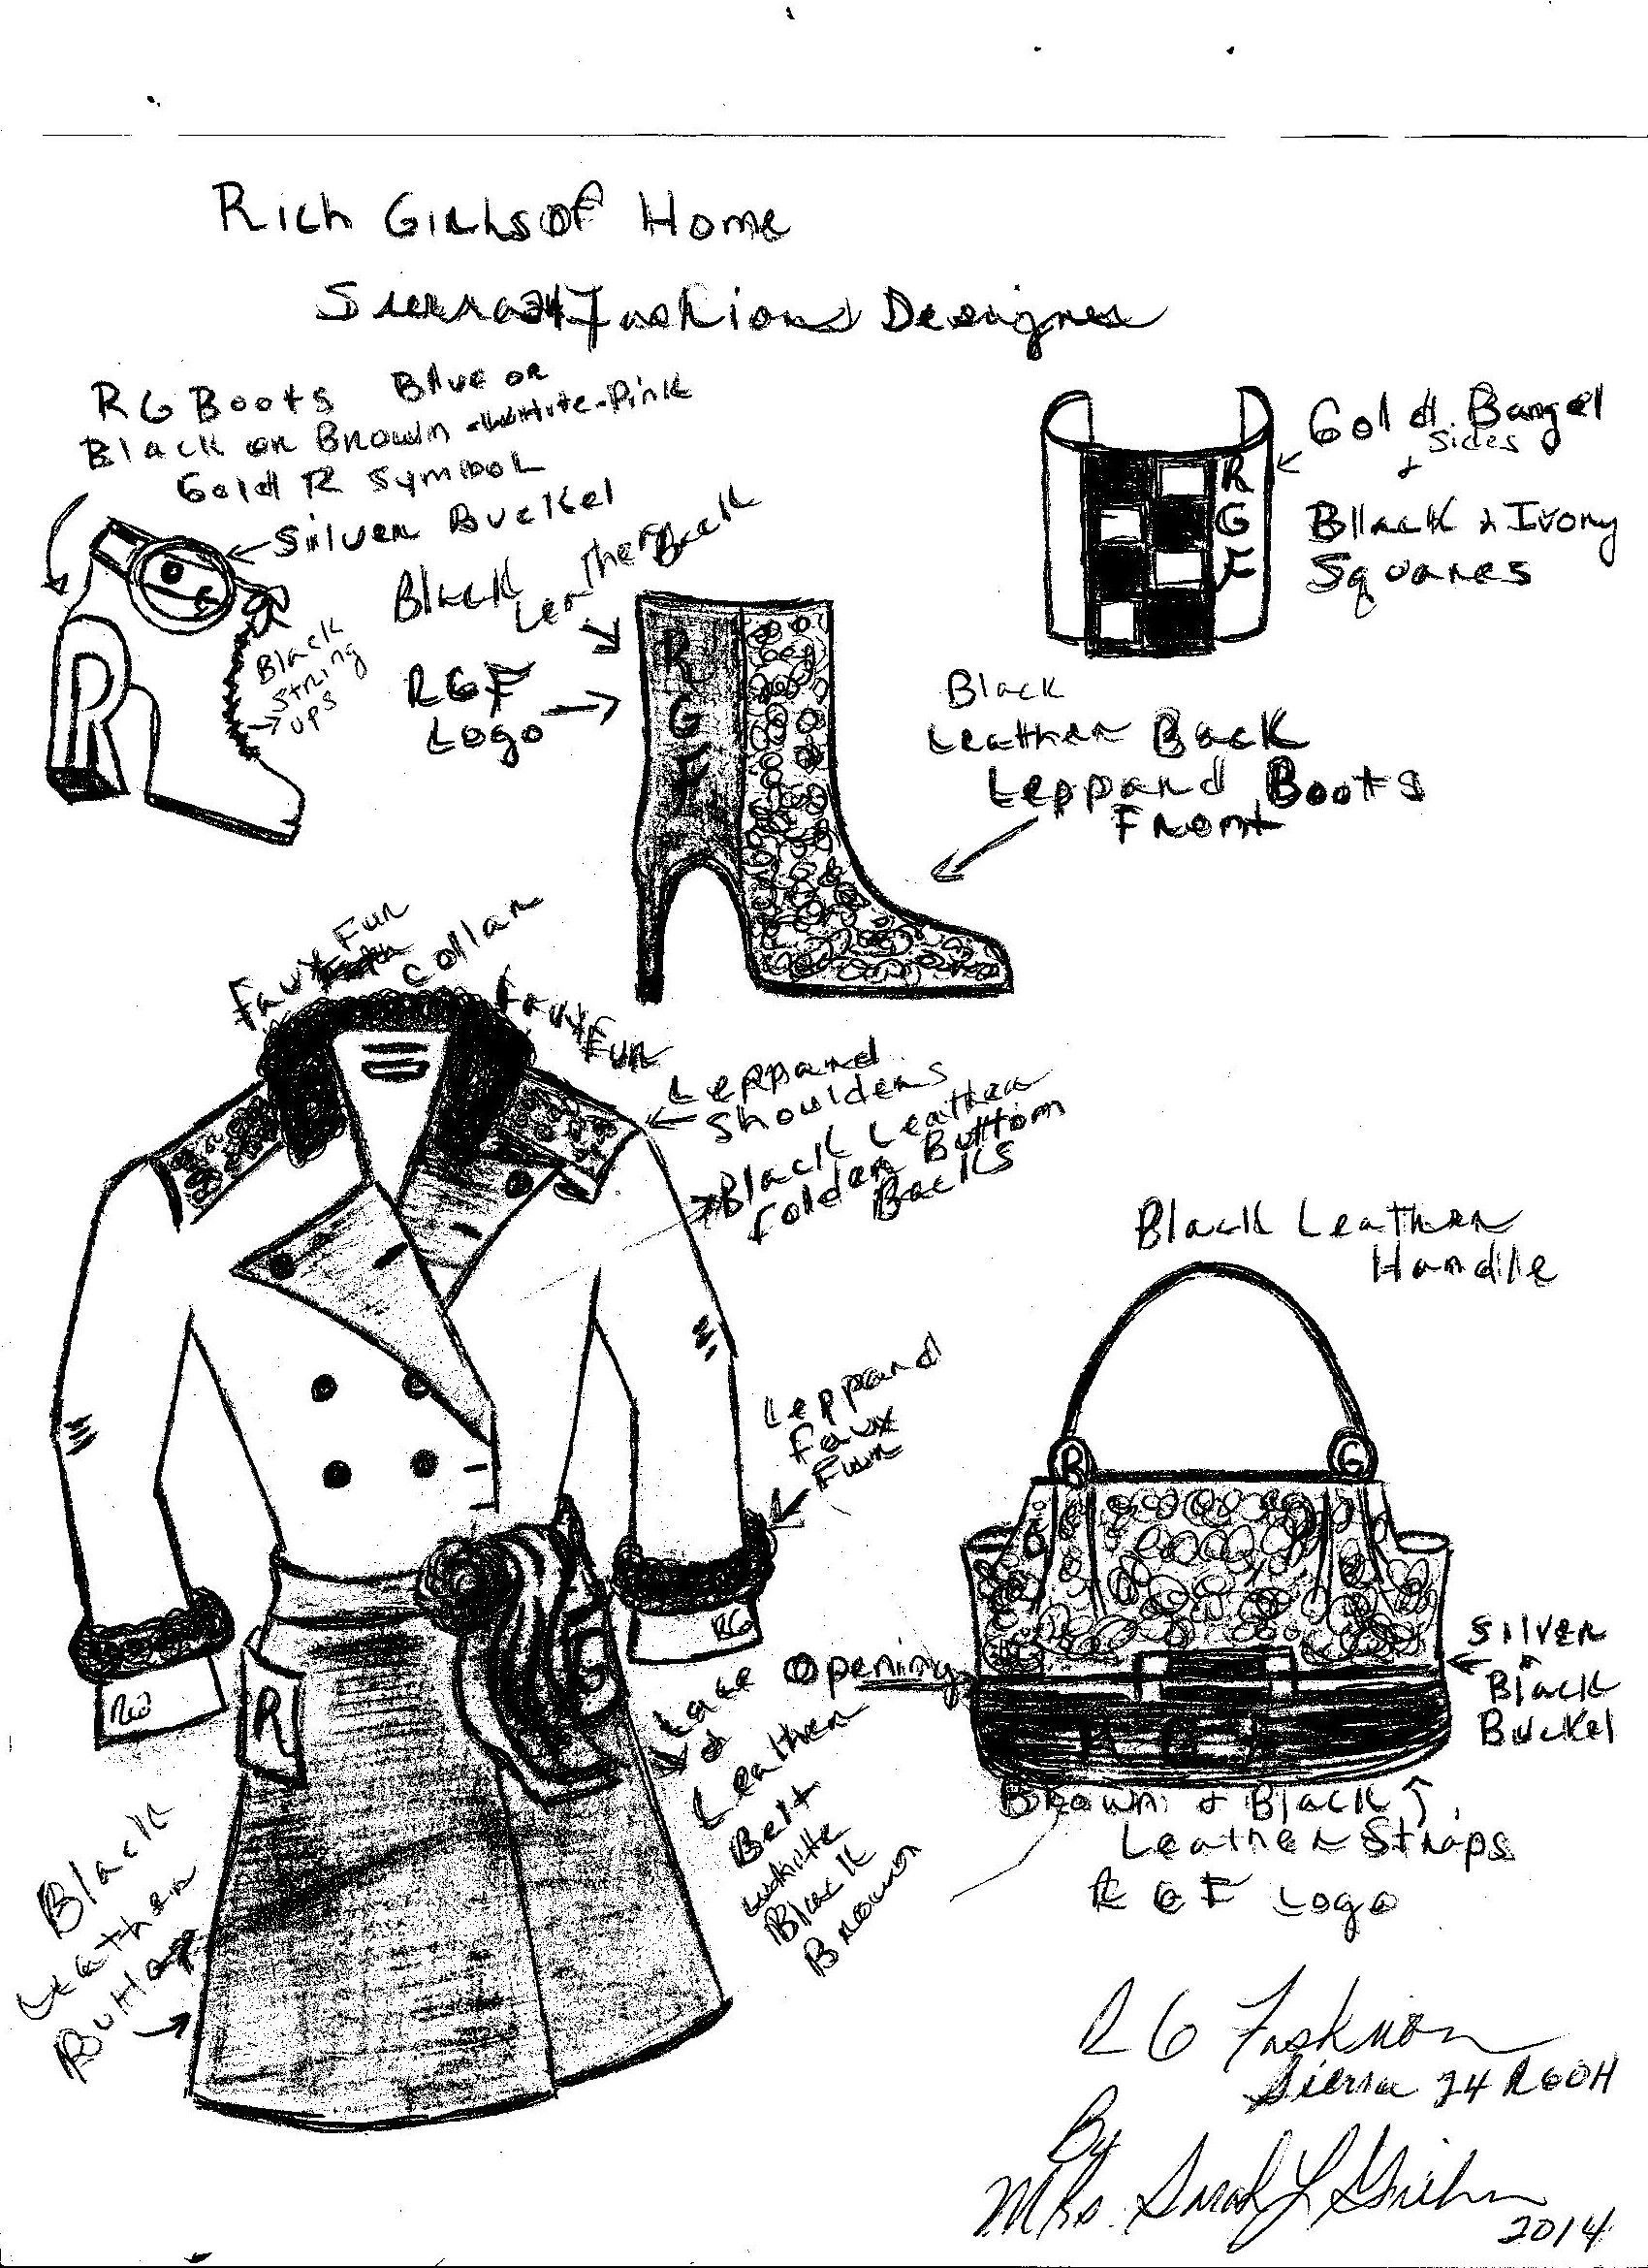 Rich Girls of Home
Sierra 24 Fashions Designer
RG Boots Blue or
Black or Brown - White - Pink
Gold R Symbol
Silver Buckel
Black
String
ups
R
Black
Leather Back
RGF
Logo
R
G
F
Gold Bangel
Sides
+
Bllack & Ivory
Squares
R
G
F
Black
Leather Back
Leppard Boots
Front
Faux Fur
Collar
Faux
Fur
Leppard
Shoulders
Black Leather
Folder Buttom
Backs
Leppard
Faux
Fur
RG
RG
R
G
Lace Opening
&
Leather
Belt
White
Black
Brown
Black
Leather
Black Leather
Handlle
R
G
Silver
+
Black
Buckel
Brown & Black
Leather Straps
RGF Logo
RG Fashion
Sierra 24 RGOH
By
Mrs. Sarah L
2014